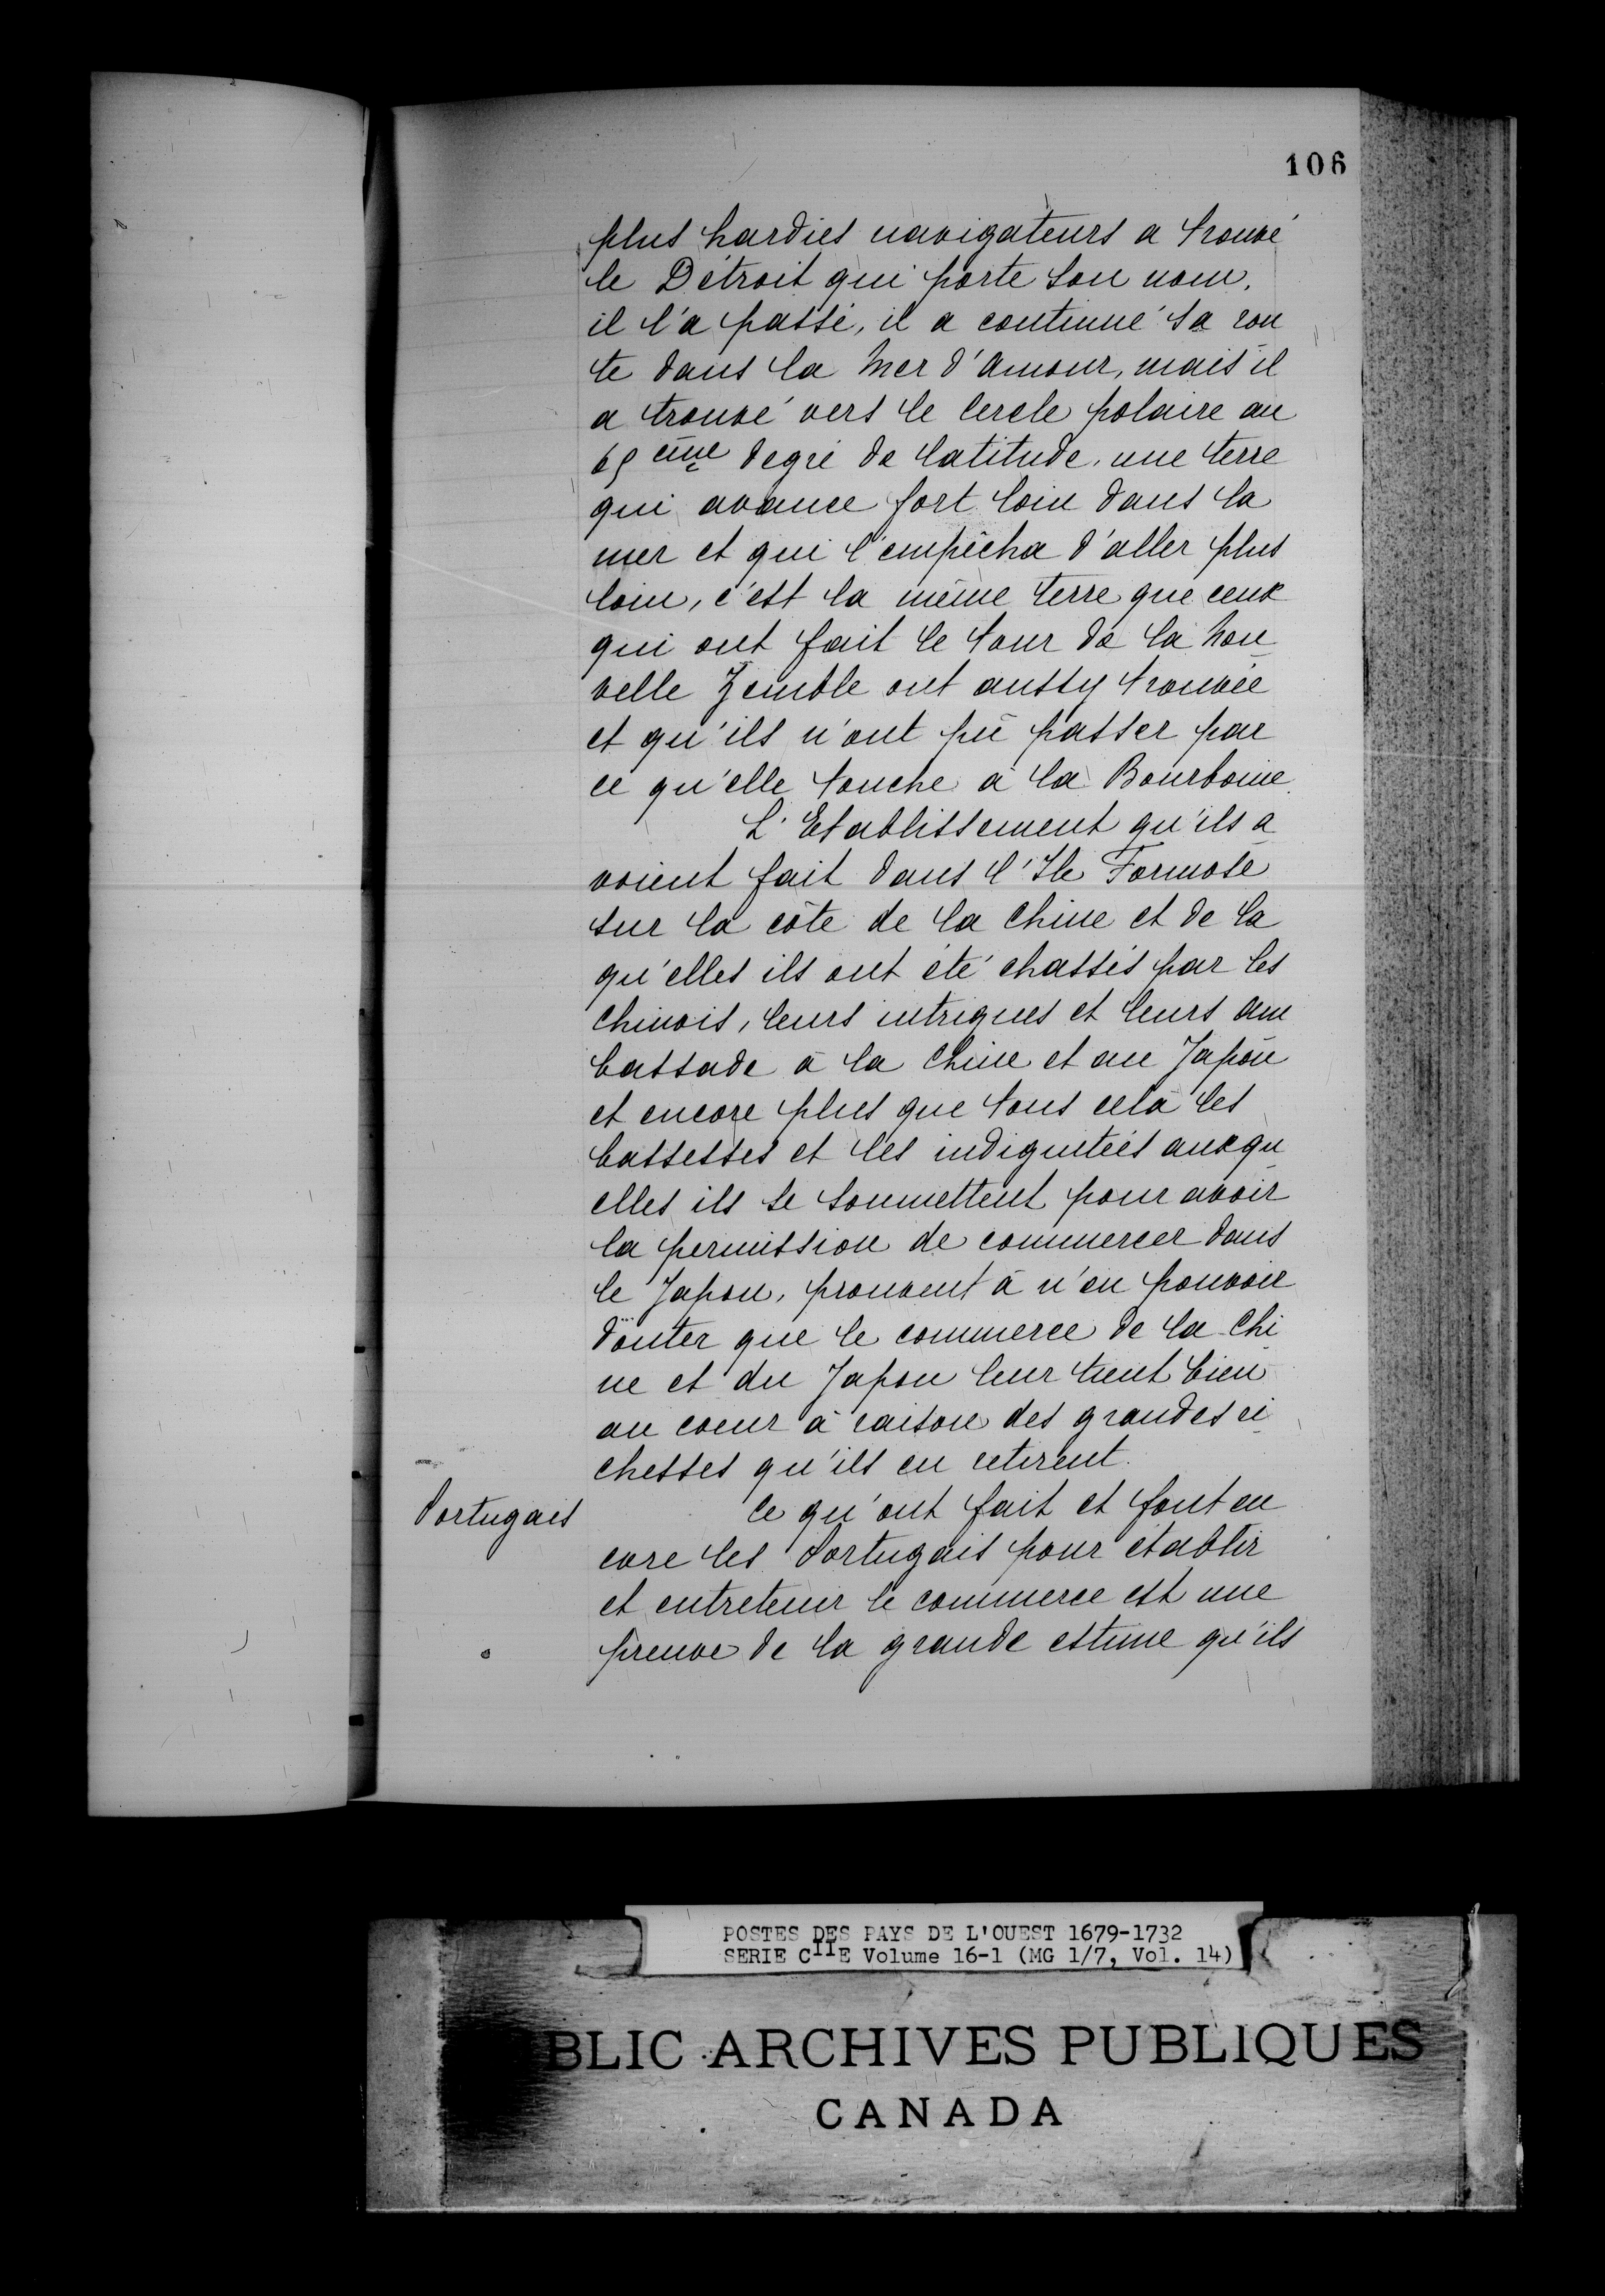 106
plus hardies navigateurs a trouvé
le Détroit qui porte son nom,
il l'a passé, il a continué sa rou
te dans la Mer d'Amour, mais il
a trouvé vers le cercle polaire au
65 ème degré de latitude, une terre
qui avance fort loin dans la
mer et qui l'empêcha d'aller plus
loin, c'est la même terre que ceux
qui ont fait le tour de la Nou
velle Zemble ont aussy trouvée
et qu'ils n'ont pû passer par
ce qu'elle touche à la Bourboine.
L'Etablissement qu'ils a
voient fait dans l'Ile Formose
sur la côte de la Chine et de la
qu'elles ils ont été chassés par les
Chinois, leurs intrigues et leurs am
bassade à la Chine et au Japon
et encore plus que tous cela les
bassesses et les indignitées auxqu
elles ils se soumettent pour avoir
la permission de commercer dans
le Japon, prouvent à n'en pouvoir
douter que le commerce de la Chi
ne et du Japon leur tient bien
au coeur à raison des grandes ri
chesses qu'ils en retirent.
Portugais
Ce qu'ont fait et font en
core les Portugais pour établir
et entretenir le commerce est une
preuve de la grande estime qu'ils
POSTES DES PAYS DE L'OUEST 1679-1732
SERIE CIIE Volume 16-1 (MG 1/7, Vol. 14)
BLIC ARCHIVES PUBLIQUES
CANADA